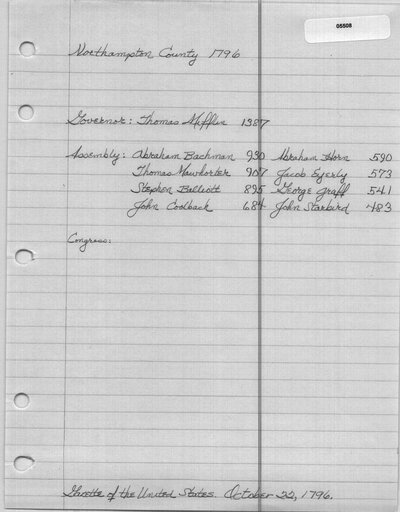 05508
Northampton County 1796
Governor: Thomas Mifflin 1387
Assembly: Abraham Bachman 930 Abraham Horn 590
Thomas Mawhorter 907 Jacob Eyerly 573
Stephen Balliott 895 George Graff 541
John Coolback 684 John Starbird 483
Congress:
Gazette of the United States. October 22, 1796.